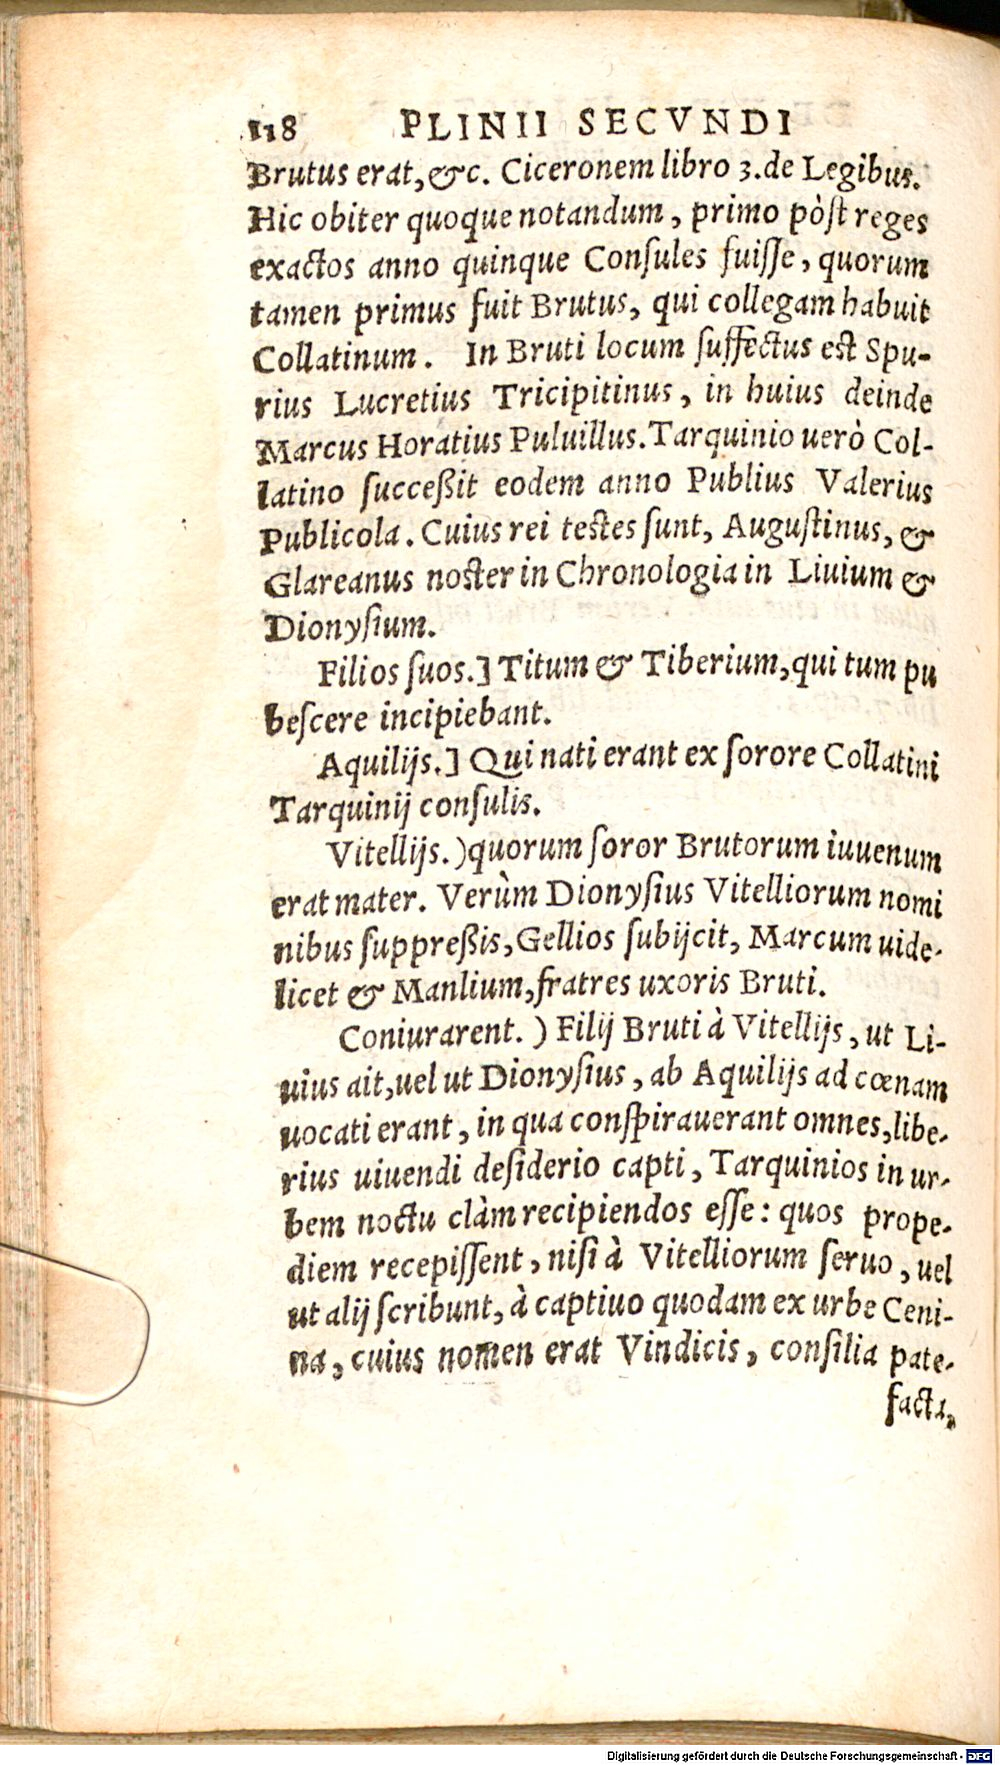 118 PLINII SECVNDI
Brutus erat, &c. Ciceronem libro 3. de Legibus.
Hic obiter quoque notandum, primo pòſt reges
exactos anno quinque Conſules fuiſſe, quorum
tamen primus fuit Brutus, qui collegam habuit
Collatinum. In Bruti locum ſuffectus est Spu-
rius Lucretius Tricipitinus, in huius deinde
Marcus Horatius Puluillus. Tarquinio uerò Col-
latino ſucceßit eodem anno Publius Valerius
Publicola. Cuius rei testes ſunt, Auguſtinus, &
Glareanus noster in Chronologia in Liuium &
Dionyſium.
Filios ſuos.] Titum & Tiberium, qui tum pu
beſcere incipiebant.
Aquilijs.] Qui nati erant ex ſorore Collatini
Tarquinij conſulis.
Vitellijs.) quorum ſoror Brutorum iuuenum
erat mater. Verùm Dionyſius Vitelliorum nomi
nibus ſuppreßis, Gellios ſubijcit, Marcum uide-
licet & Manlium, fratres uxoris Bruti.
Coniurarent.) Filij Bruti à Vitellijs, ut Li-
uius ait, uel ut Dionyſius, ab Aquilijs ad cœnam
uocati erant, in qua conſpirauerant omnes, libe-
rius uiuendi deſiderio capti, Tarquinios in ur-
bem noctu clàm recipiendos eſſe: quos prope-
diem recepiſſent, niſi à Vitelliorum ſeruo, uel
ut alij ſcribunt, à captiuo quodam ex urbe Ceni-
na, cuius nomen erat Vindicis, conſilia pate-
facta,
Digitalisierung gefördert durch die Deutsche Forschungsgemeinschaft - DFG